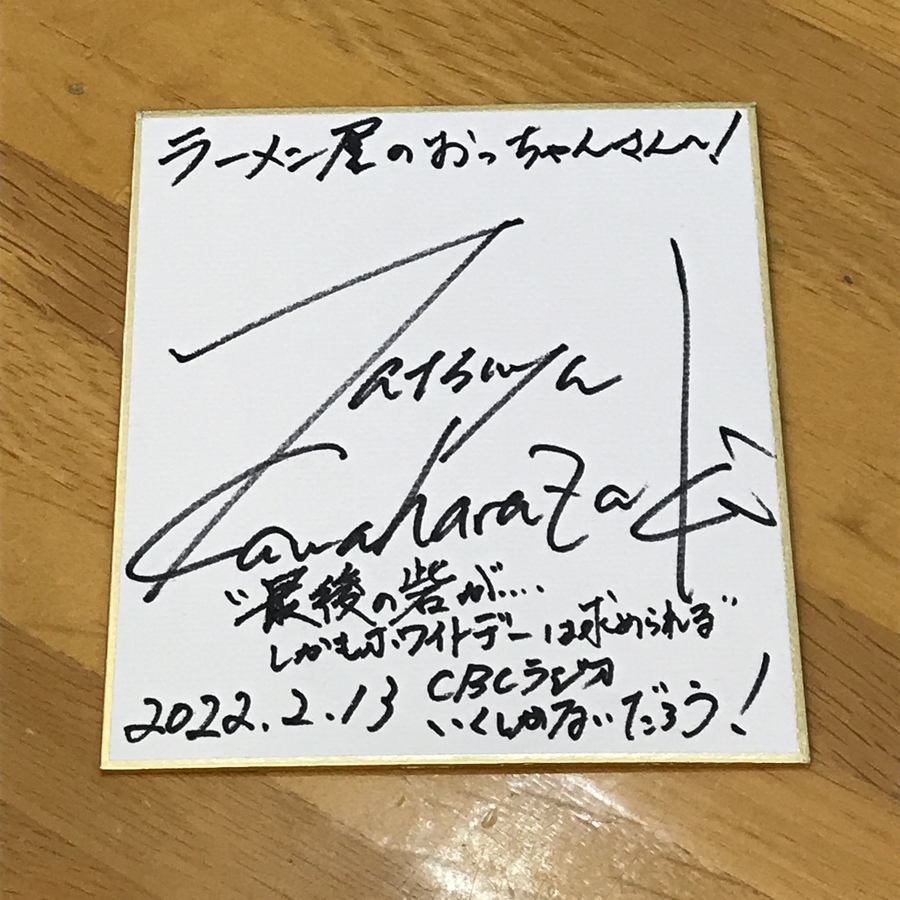 ラーメン屋のおっちゃんさんへ!
Tatsuya
Kawaharazaki
"最後の砦が....
しかもホワイトデーは求められる"
2022.2.13
CBCラジオ
いくしかないだろう!